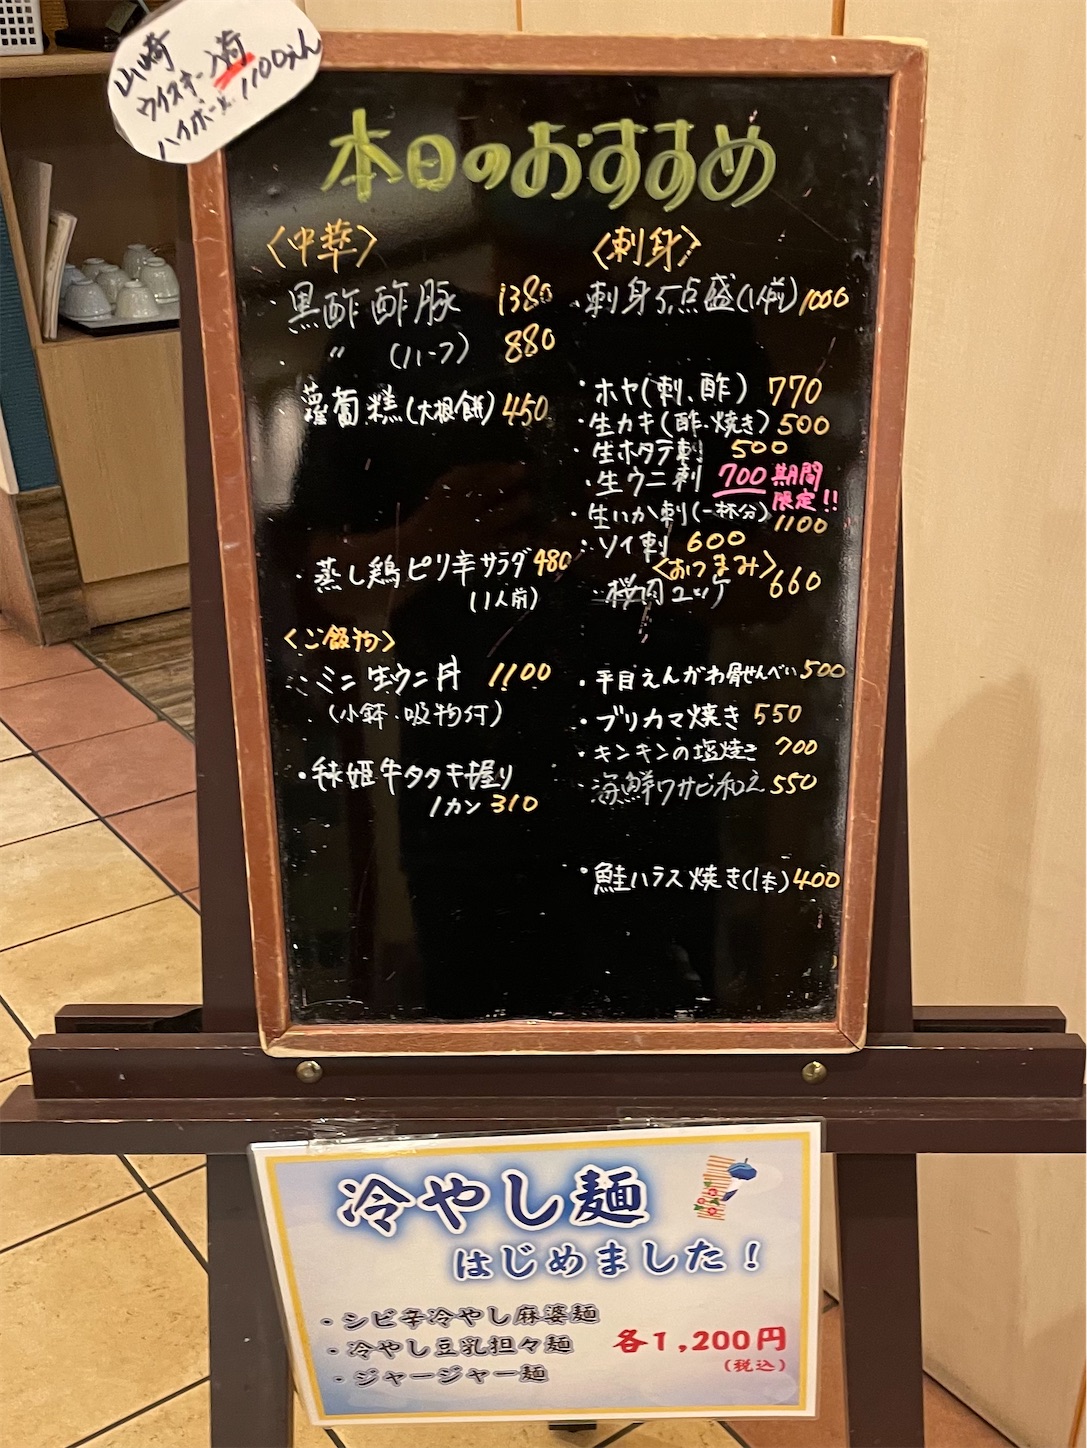 山崎
ウイスキー
ハイボール 1100えん
本日のおすすめ
〈中華〉
・黒酢酢豚 1380
・〃 (ハーフ) 880
蘿蔔糕(大根餅) 450
・蒸し鶏ピリ辛サラダ 480
(1人前)
〈ご飯物〉
ミニ生ウニ丼 1100
(小鉢・吸物付)
・秘姫牛タタキ握り
1カン 310
〈刺身〉
・刺身5点盛(1人前) 1000
・ホヤ(刺、酢) 770
・生カキ(酢・焼き) 500
・生ホタテ刺 500
・生ウニ刺 700 期間限定!!
・生いか刺(一杯分) 1100
・ソイ刺 600
〈おつまみ〉
・桜肉ユッケ 660
・平目えんがわ骨せんべい 500
・ブリカマ焼き 550
・キンキンの塩焼き 700
海鮮ワサビ和え 550
・鮭ハラス焼き(1本) 400
冷やし麺
はじめました！
・シビ辛冷やし麻婆麺
・冷やし豆乳担々麺
・ジャージャー麺
各1,200円
(税込)